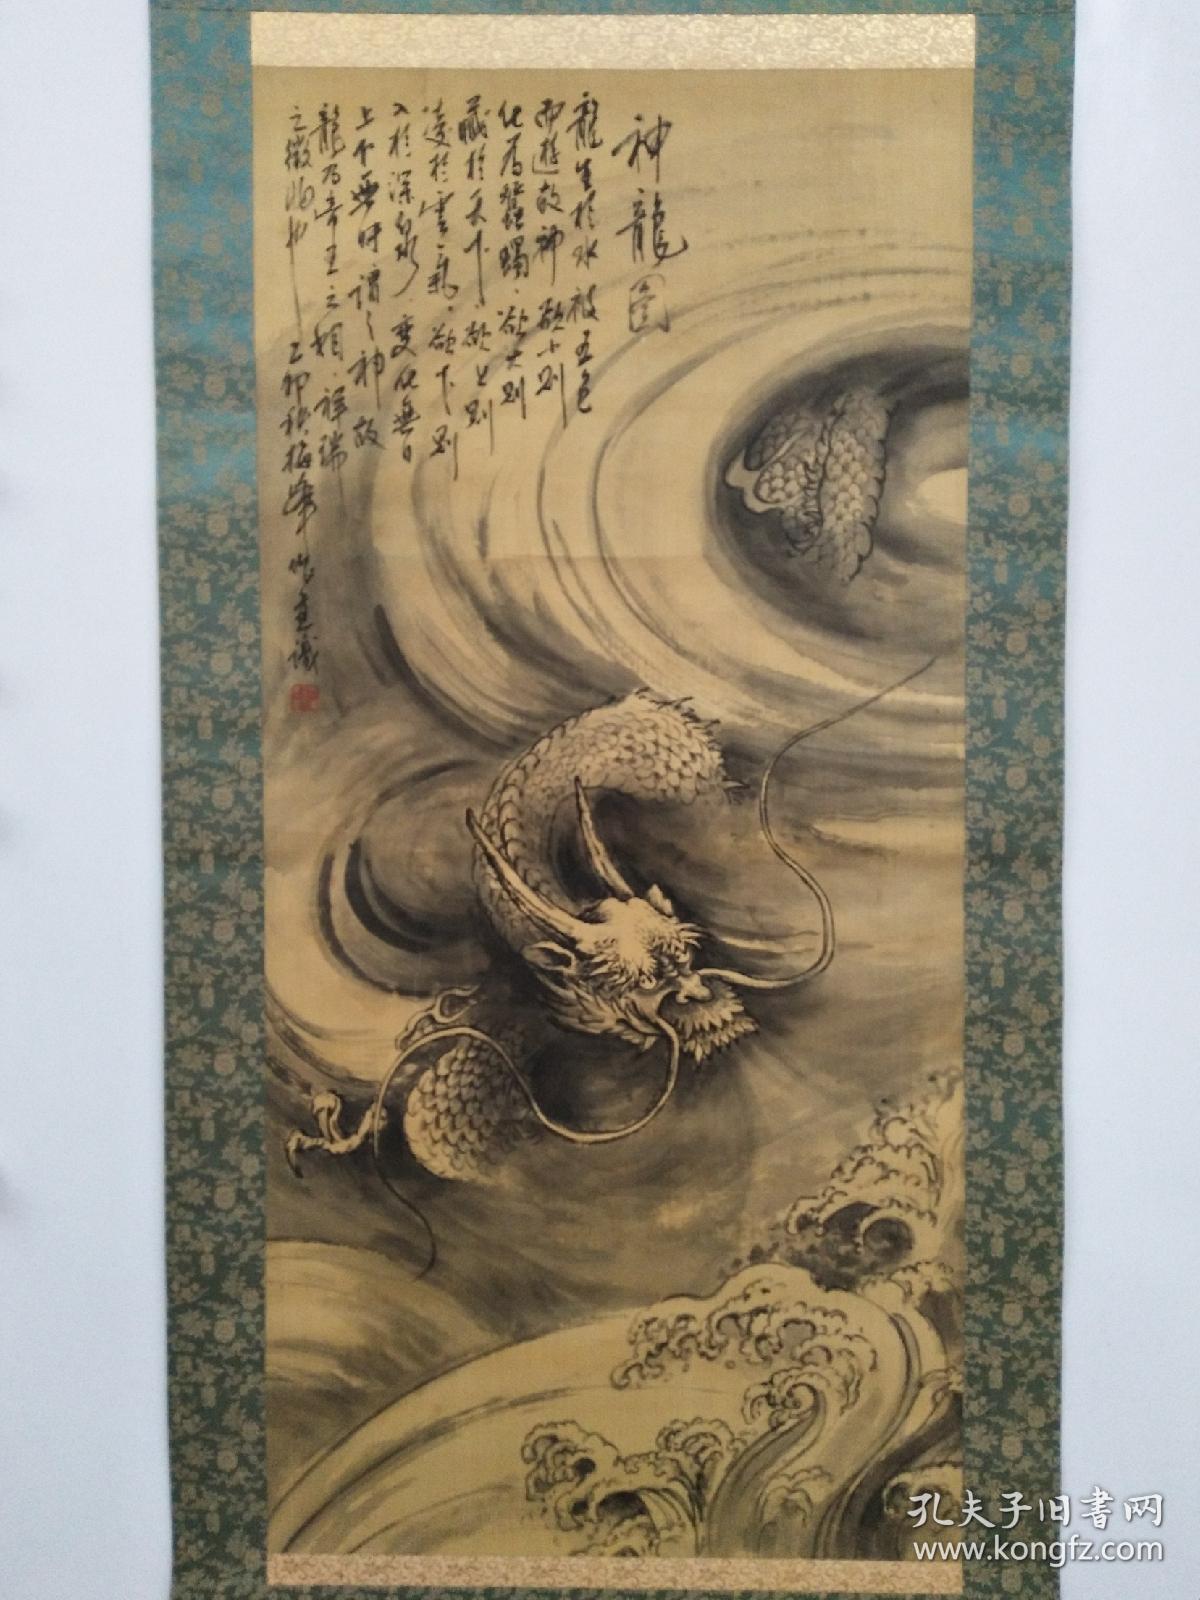 神龍圖
龍生於水被五色
而遊故神欲小則
化為蠶蠋欲大則
藏於天下欲上則
凌於雲氣欲下則
入於深泉變化無日
上下無時謂之神故
龍乃帝王之相祥瑞
之徵兆也乙卯秋梅峰作並識
孔夫子旧书网
www.kongfz.com